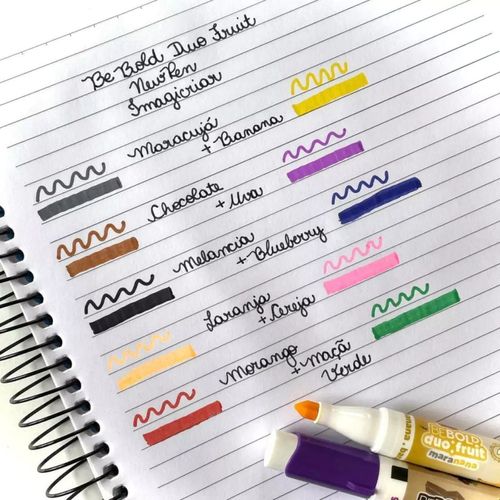 Be Bold Duo Fruit
NewPen
Imagicriar
Maracujá
+ Banana
Chocolate
+ Uva
Melancia
+ Blueberry
Laranja
+ Cereja
Morango
+ Maçã
Verde
BE BOLD
duo.fruit
maranana